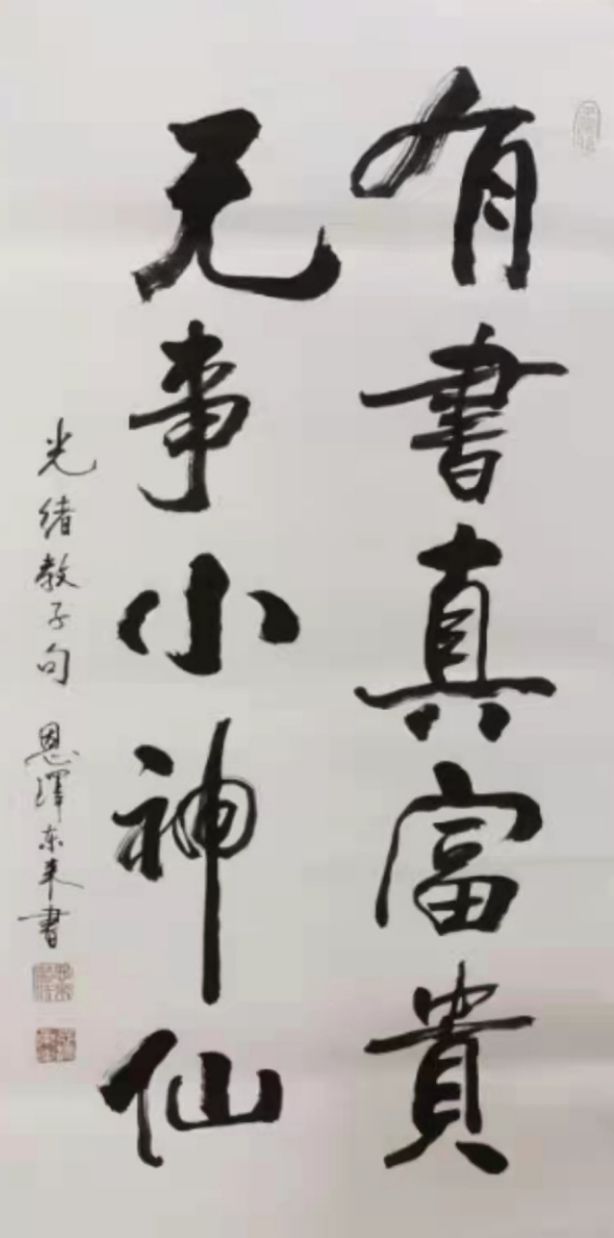 有書真富貴
无事小神仙
光绪教子句 恩澤东来書